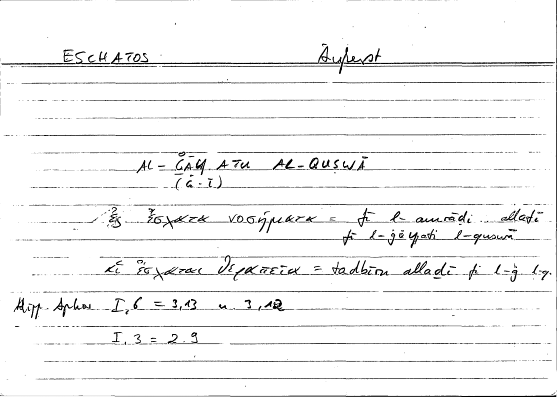 ESCHATOS Äußerst
AL-ĠĀYATU AL-QUṢWĀ
(Ġ-Ī)
ἐς ἔσχατα νοσήματα = fī l-amrāḍi allatī
fī l-ġāyati l-quṣwā
αἱ ἔσχαται θεραπεῖαι = tadbīru allaḏī fī l-ġ l-q.
Hipp. Aphor. I,6 = 3,13 u. 3,12
I,3 = 2.9